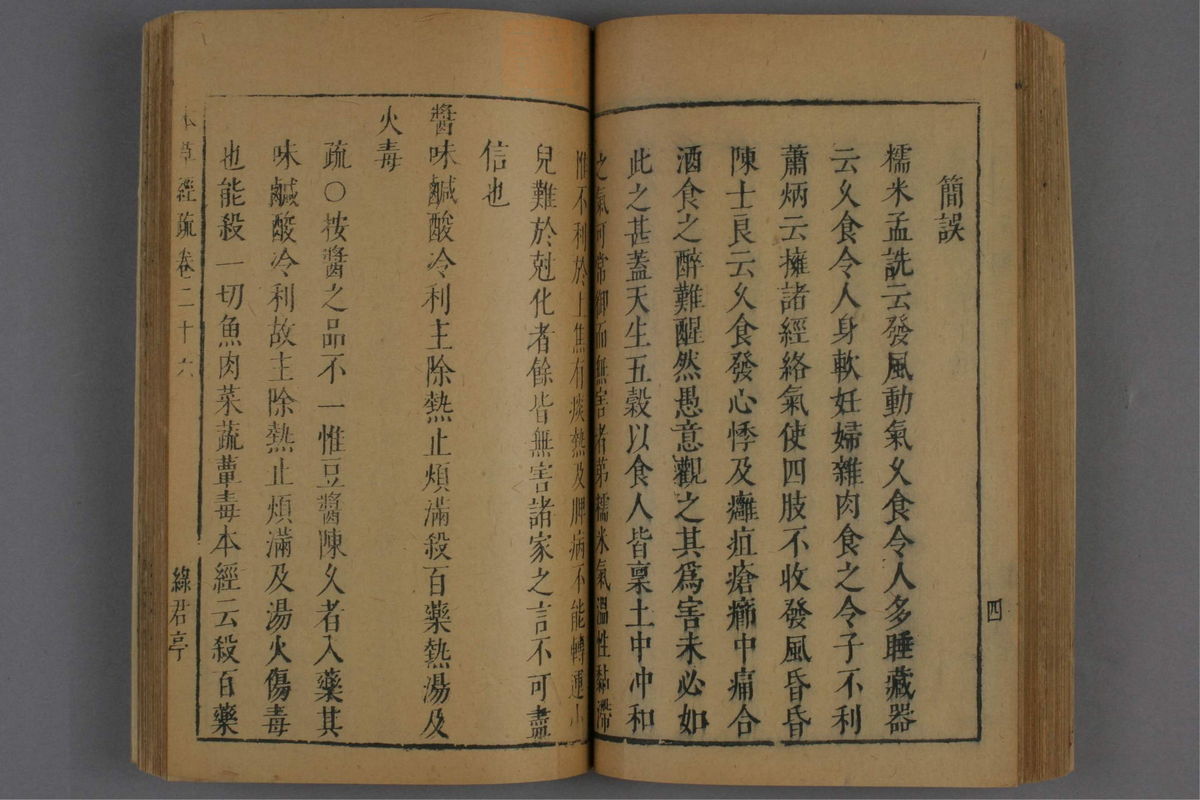 簡誤
糯米孟詵云發風動氣久食令人多睡藏器
云久食令人身軟妊婦雜肉食之令子不利
蕭炳云擁諸經絡氣使四肢不收發風昏昏
陳士良云久食發心悸及癰疽瘡癤中痛合
酒食之醉難醒然愚意觀之其爲害未必如
此之甚蓋天生五穀以食人皆稟土中冲和
之氣可常御而無害者第糯米氣溫性黏滯
惟不利於上焦有痰熱及脾病不能轉運小
兒難於尅化者餘皆無害諸家之言不可盡
信也
醬味鹹酸冷利主除熱止煩滿殺百藥熱湯及
火毒
疏○按醬之品不一惟豆醬陳久者入藥其
味鹹酸冷利故主除熱止煩滿及湯火傷毒
也能殺一切魚肉菜蔬蕈毒本經云殺百藥
四
本草經疏卷二十六
綠君亭